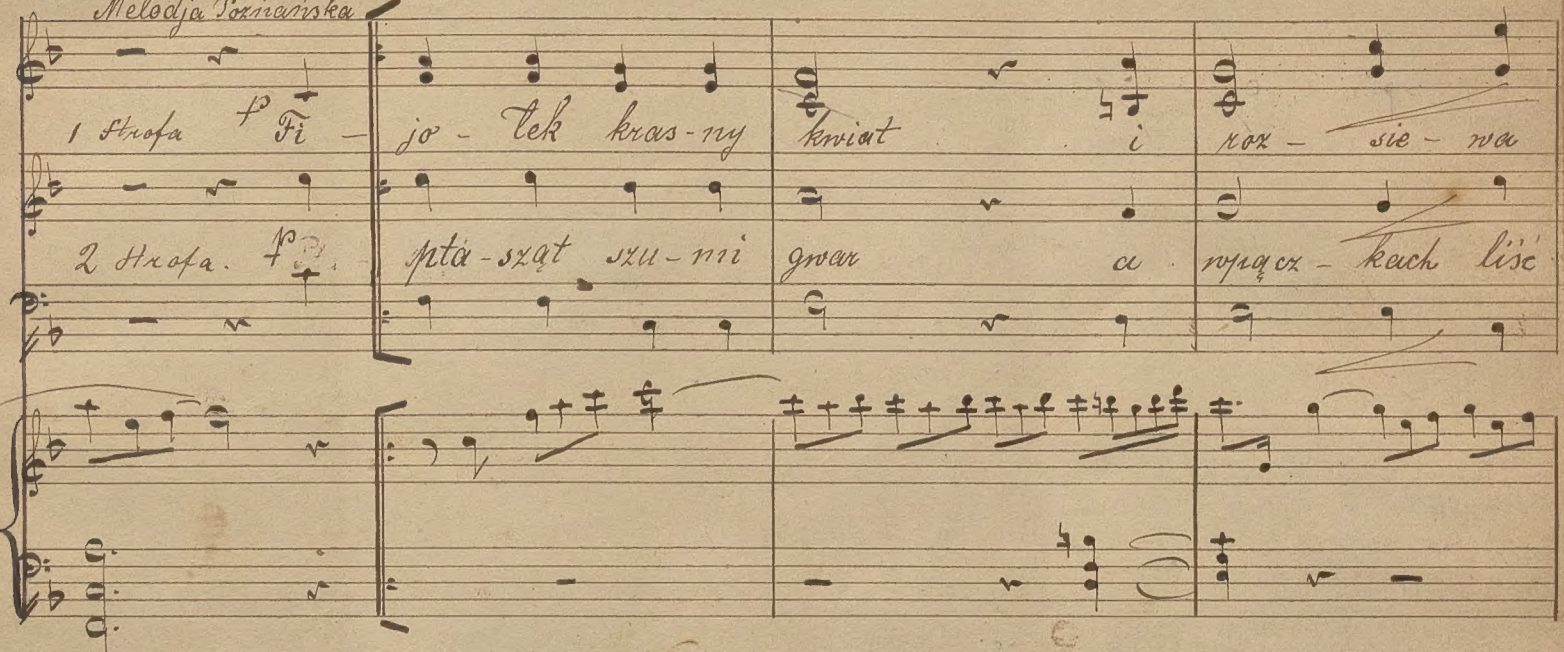 Melodja Poznańska
1 Strofa p Fi - jo - łek kras - ny kwiat i roz - sie - wa
2 Strofa. p ptá - sząt szu - mi gwar a wpącz - kach liść